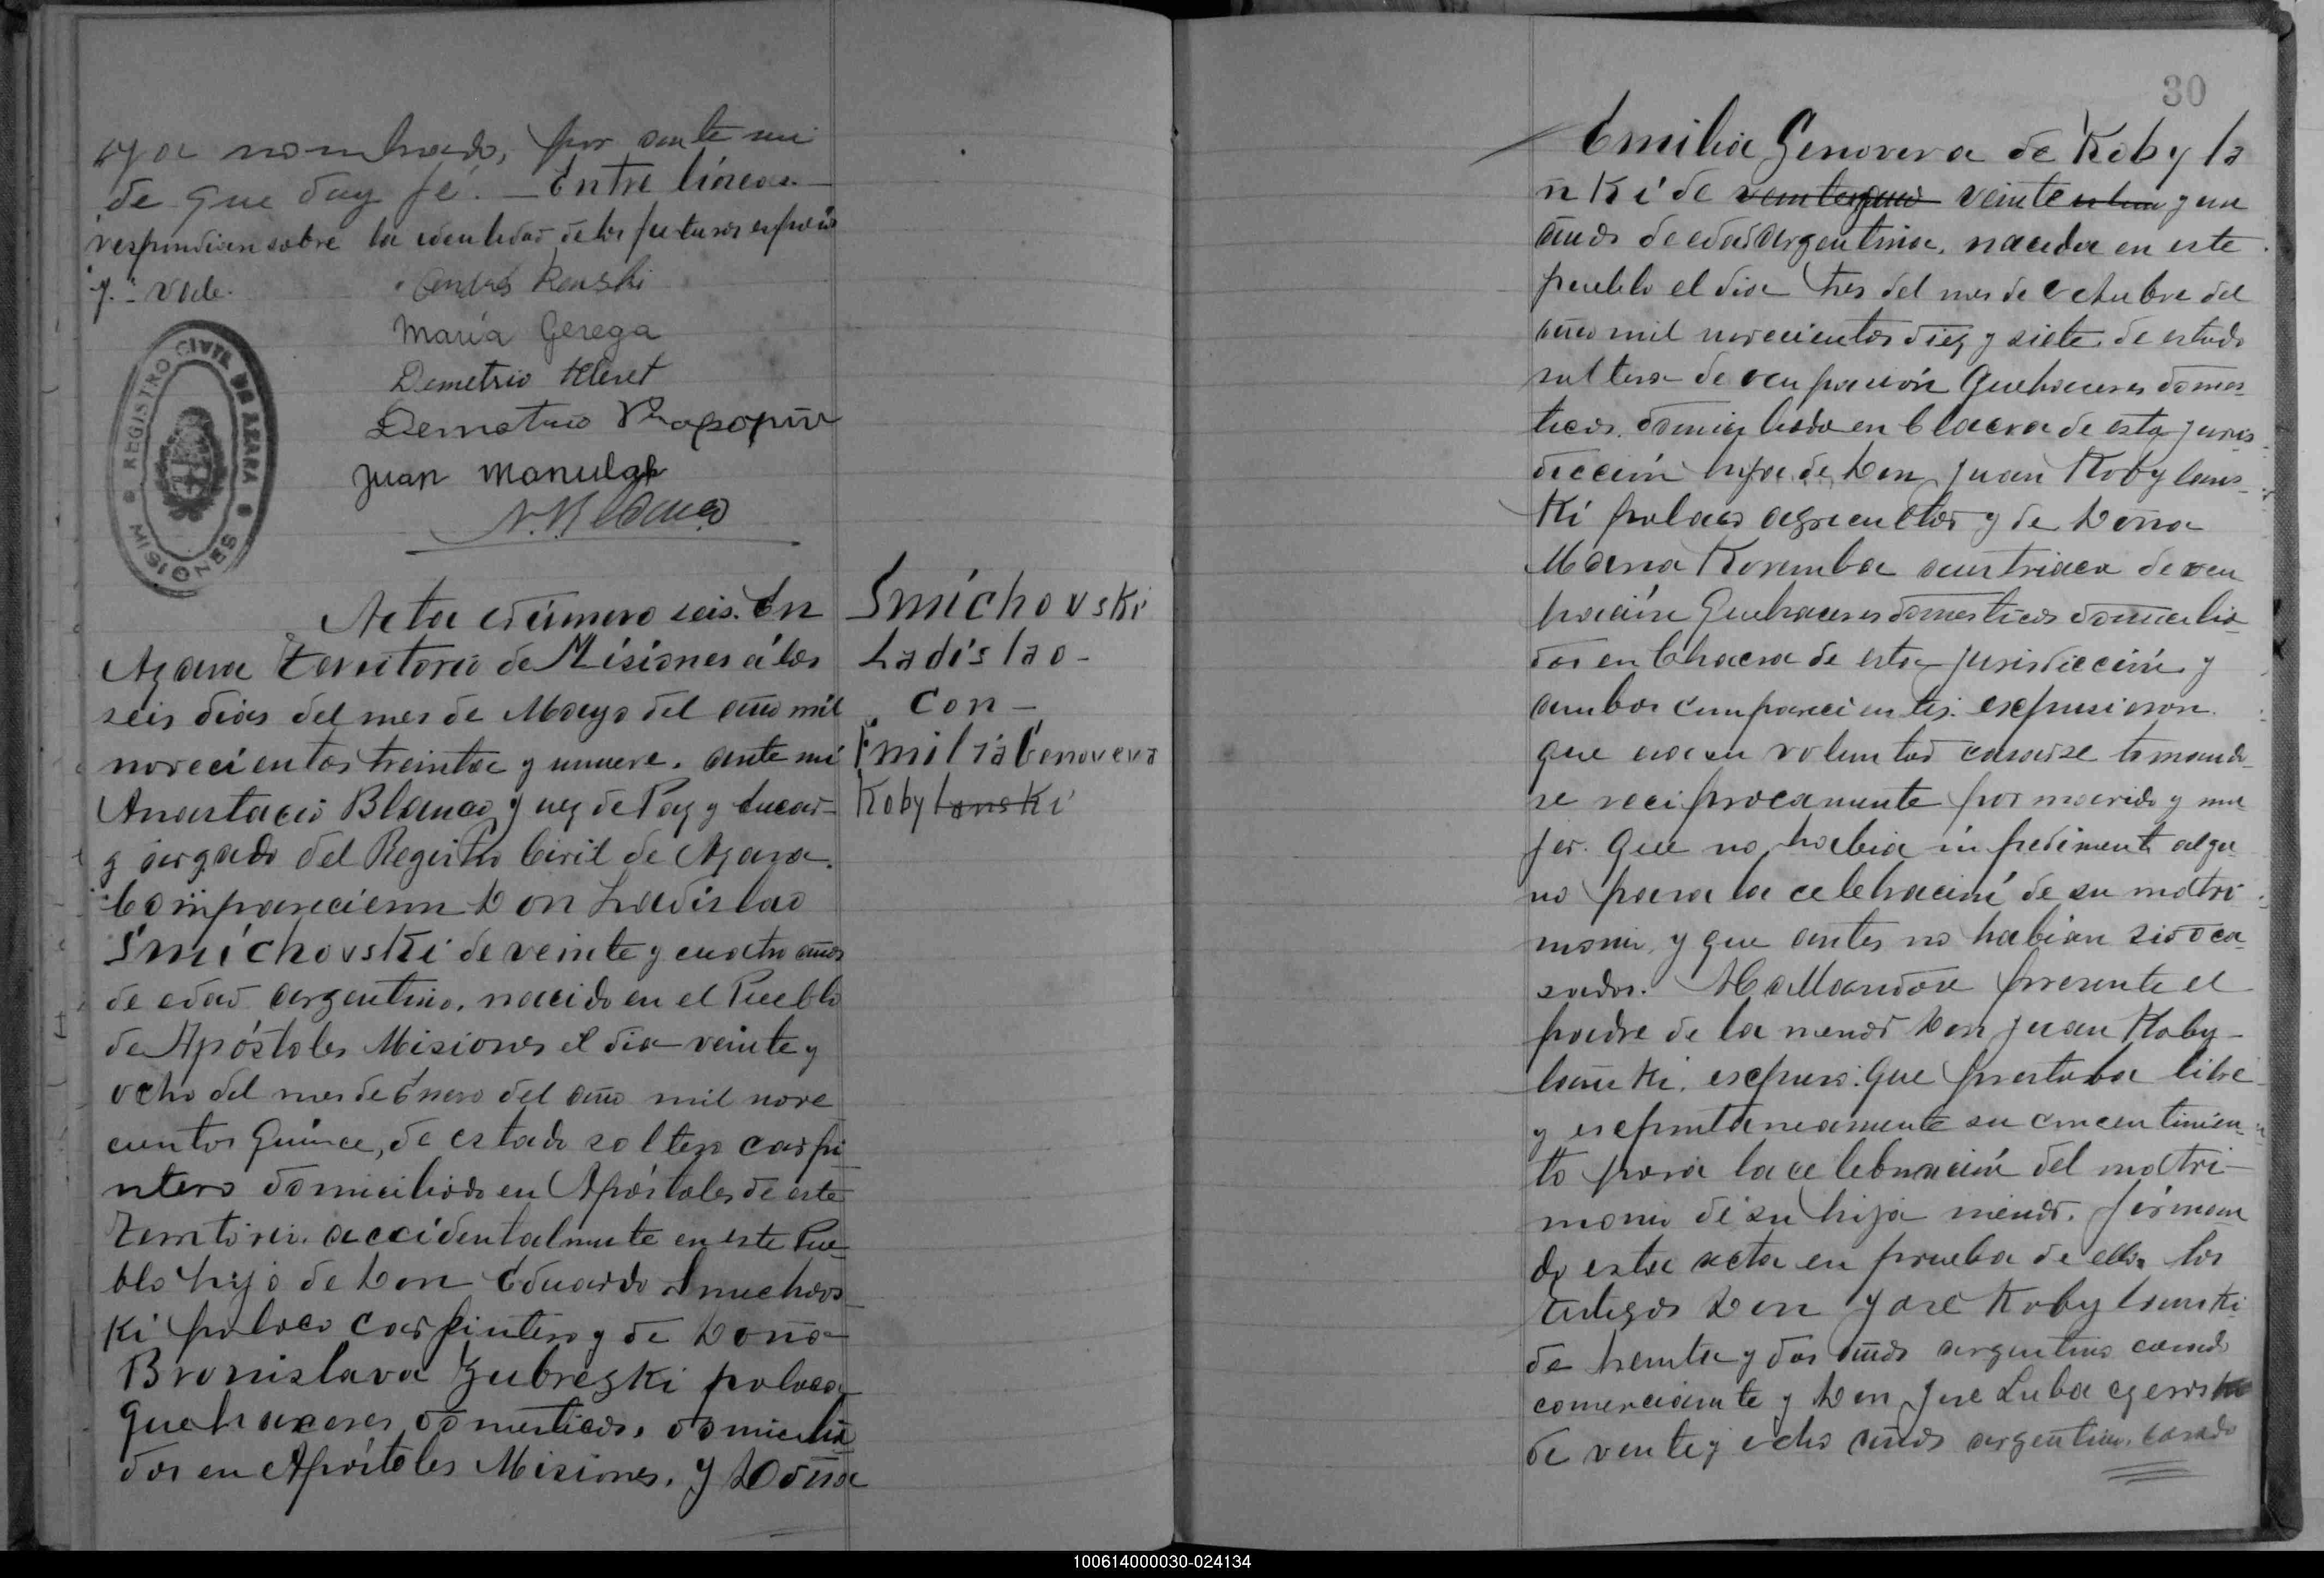 ya nombrado, por ante mi
de que doy fé. — Entre lineas —
respondien sobre la identidad de los futuros esposos
y. - Vale.
María Gerega
Demetrio
Demetrio
Juan Manulak
A. Blanco
REGISTRO CIVIL DE AZARA
MISIONES
Acta número seis. En
Azara territorio de Misiones á los
seis dias del mes de Mayo del año mil
novecientos treinta y nueve. ante mi
Anastacio Blanco Juez de Paz y Encar-
gado del Registro Civil de Azara.
Comparecieron Don Ladislao
Smíchovski de veinte y cuatro años
de edad argentino. nacido en el Pueblo
de Apóstoles Misiones el dia veinte y
ocho del mes de Enero del año mil nove
cientos Quince, de estado soltero carpi
ntero domiciliado en Apóstoles de este
territorio. accidentalmente en este Pue
blo hijo de Don Eduardo Smichovs
Ki polaco carpintero y de Doña
Bronislava Zubreski polaca
Quehaceres domesticos. domicilia
dos en Apóstoles Misiones. y Doña
Smíchovski
Ladislao -
Con -
Emilia Genoveva
Kobylanski
30
Emilia Genoveva de Kobyla
nKi de veinte y un
años de edad argentina. nacida en este
pueblo el dia tres del mes de Octubre del
año mil novecientos diez y siete. de estado
soltera de ocupación Quehaceres domes
ticos. domiciliada en Chacra de esta juris
dicción hija de Don Juan Kobylans
Ki polaco agricultor y de Doña
Maria Korumba austriaca de ocu
pación Quehaceres domesticos domicilia
dos en Chacra de esta jurisdicción y
ambos comparecientes. expusieron.
que era su voluntad casarse tomando
se reciprocamente por marido y mu
jer. Que no habia inpedimento algu
no para la celebración de su matri
monio, y que antes no habian sido ca
sados. Hallandose presente el
padre de la menor Don Juan Koby-
lanski. expuso: Que prestaba libre
y espontáneamente su concentimien
to para la celebración del matri-
monio de su hija menor. firman
do esta acta en prueba de ello. los
testigos Don José Kobylanski
de treinta y dos años argentino casado
comerciante y Don Jose
de vente y ocho años argentino. casado
100614000030-024134